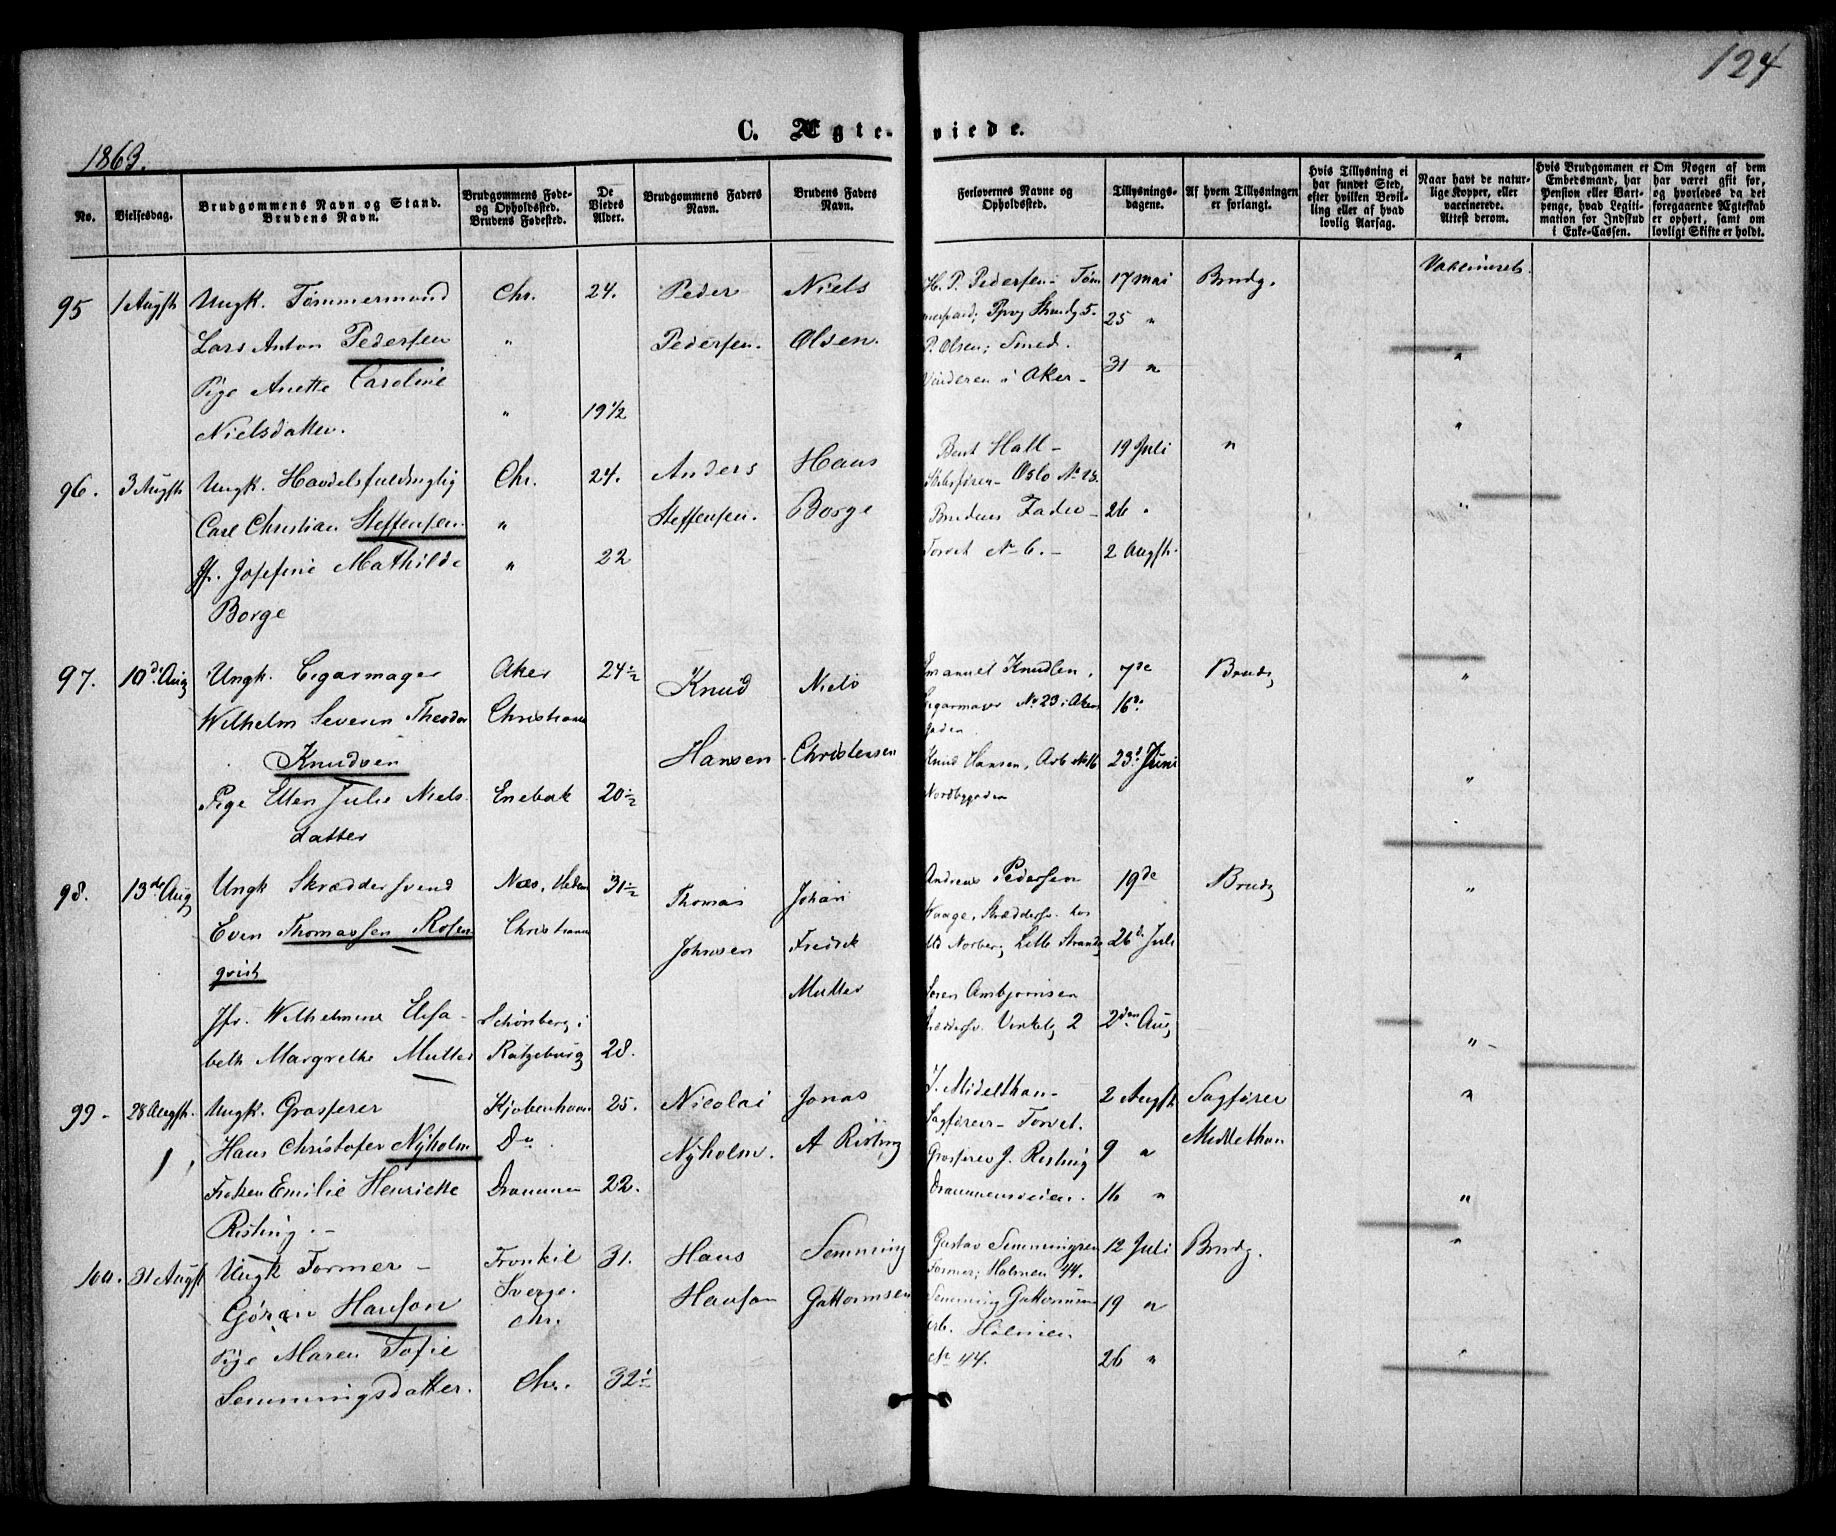 124
C. Ægte-viede.
1863.
No.
Vielsesdag.
Brudgommens Navn og Stand.
Brudens Navn.
Brudgommens Føde- og Opholdssted.
Brudens Fødested.
De Viedes Alder.
Brudgommens Faders Navn.
Brudens Faders Navn.
Forlovernes Navne og Opholdssted.
Tillysnings-dagene.
Af hvem Tillysningen er forlangt.
Hvis Tillysning ei har fundet Sted, efter hvilken Bevilling eller af hvad lovlig Aarsag.
Naar havt de naturlige Kopper, eller vaccinerede. Attest derom.
Hvis Brudgommen er Embedsmand, har Pension eller Vartpenge, hvad Legitimation for Indskud i Enke-Cassen.
Om Nogen af dem har været gift før, og hvorledes da det foregaaende Ægteskab er ophørt, samt om lovligt Skifte er holdt.
95 1 Augst Ungk. Tømmermand Chr. 24. Peder Niels H. P. Pedersen - Tøm 17 mai Brudg. Vakcineret.
Lars Anton Pedersen " Pedersen. Olsen. 25 "
P. Olsen; Smed.
Pige Anette Caroline Vinderen i Aker - 31 "
Nielsdatter. " 19 1/2 "
96. 3 Augst Ungk. Handelsfuldmgtig Chr. 24. Anders Hans Bent Hall - 19 Juli "
Oslo No 13.
Carl Christian Steffensen. " Steffensen. Borge Brudens Fader - 26 "
Jf. Josefine Mathilde " 22 Torvet No 6. - 2 Augst.
Borge
97. 10d Aug Ungk. Cigarmager Aker 24 1/2 Knud Niels Emanuel Knudsen, 7de Brudg
Wilhelm Severin Theodor Christiania Cigarmager No 23 i Akers 16d
gaden
Knudsen Hansen Christensen Knud Hansen, Arb No 16 23d Juni
Pige Ellen Julie Niels- Enebak 20 1/2 Nordbygaden "
datter
98. 13de Aug Ungk Skræddersvend Næs, Hedem 31 1/2 Thomas Johan Andreas Pedersen 19de Brudg "
Waage, Skræddersv. hos
Even Thomassen Rosen Christiania Johnsen Fredrik Md Norberg, Lille Strandg 26d Juli
qvist Muller
Jfr. Wilhelmine Elisa- Schönberg i Søren Ambjørnsen
Skræddersv. Vinkelg 2 2den Aug
beth Margrethe Muller Ratzeburg 28. "
99 - 28 Augst. Ungk. Grosserer Kjøbenhavn 25. Nicolai Jonas J. Midelthon - 2 Augst Sagfører "
Sagfører - Torvet.
Hans Christofer Nyholm Do. Nyholm. A Risting Grosserer J. Risting 9 " Middelthon
Frøken Emilie Henriette Drammen 22. Drammensveien. 16 " "
Risting. -
100. 31 Augst Ungk Former - 31. Hans Semming Gustav Semmingsen 12 Juli Brudg. "
Sverge. Former; Holmen 44.
Göran Hanson Chr. Hanson Guttormsen Semming Guttormsen 19 "
Arb. Holmen
Pige Maren Sofie No 44. 26 "
Semmingsdatter. Chr. 32 1/2